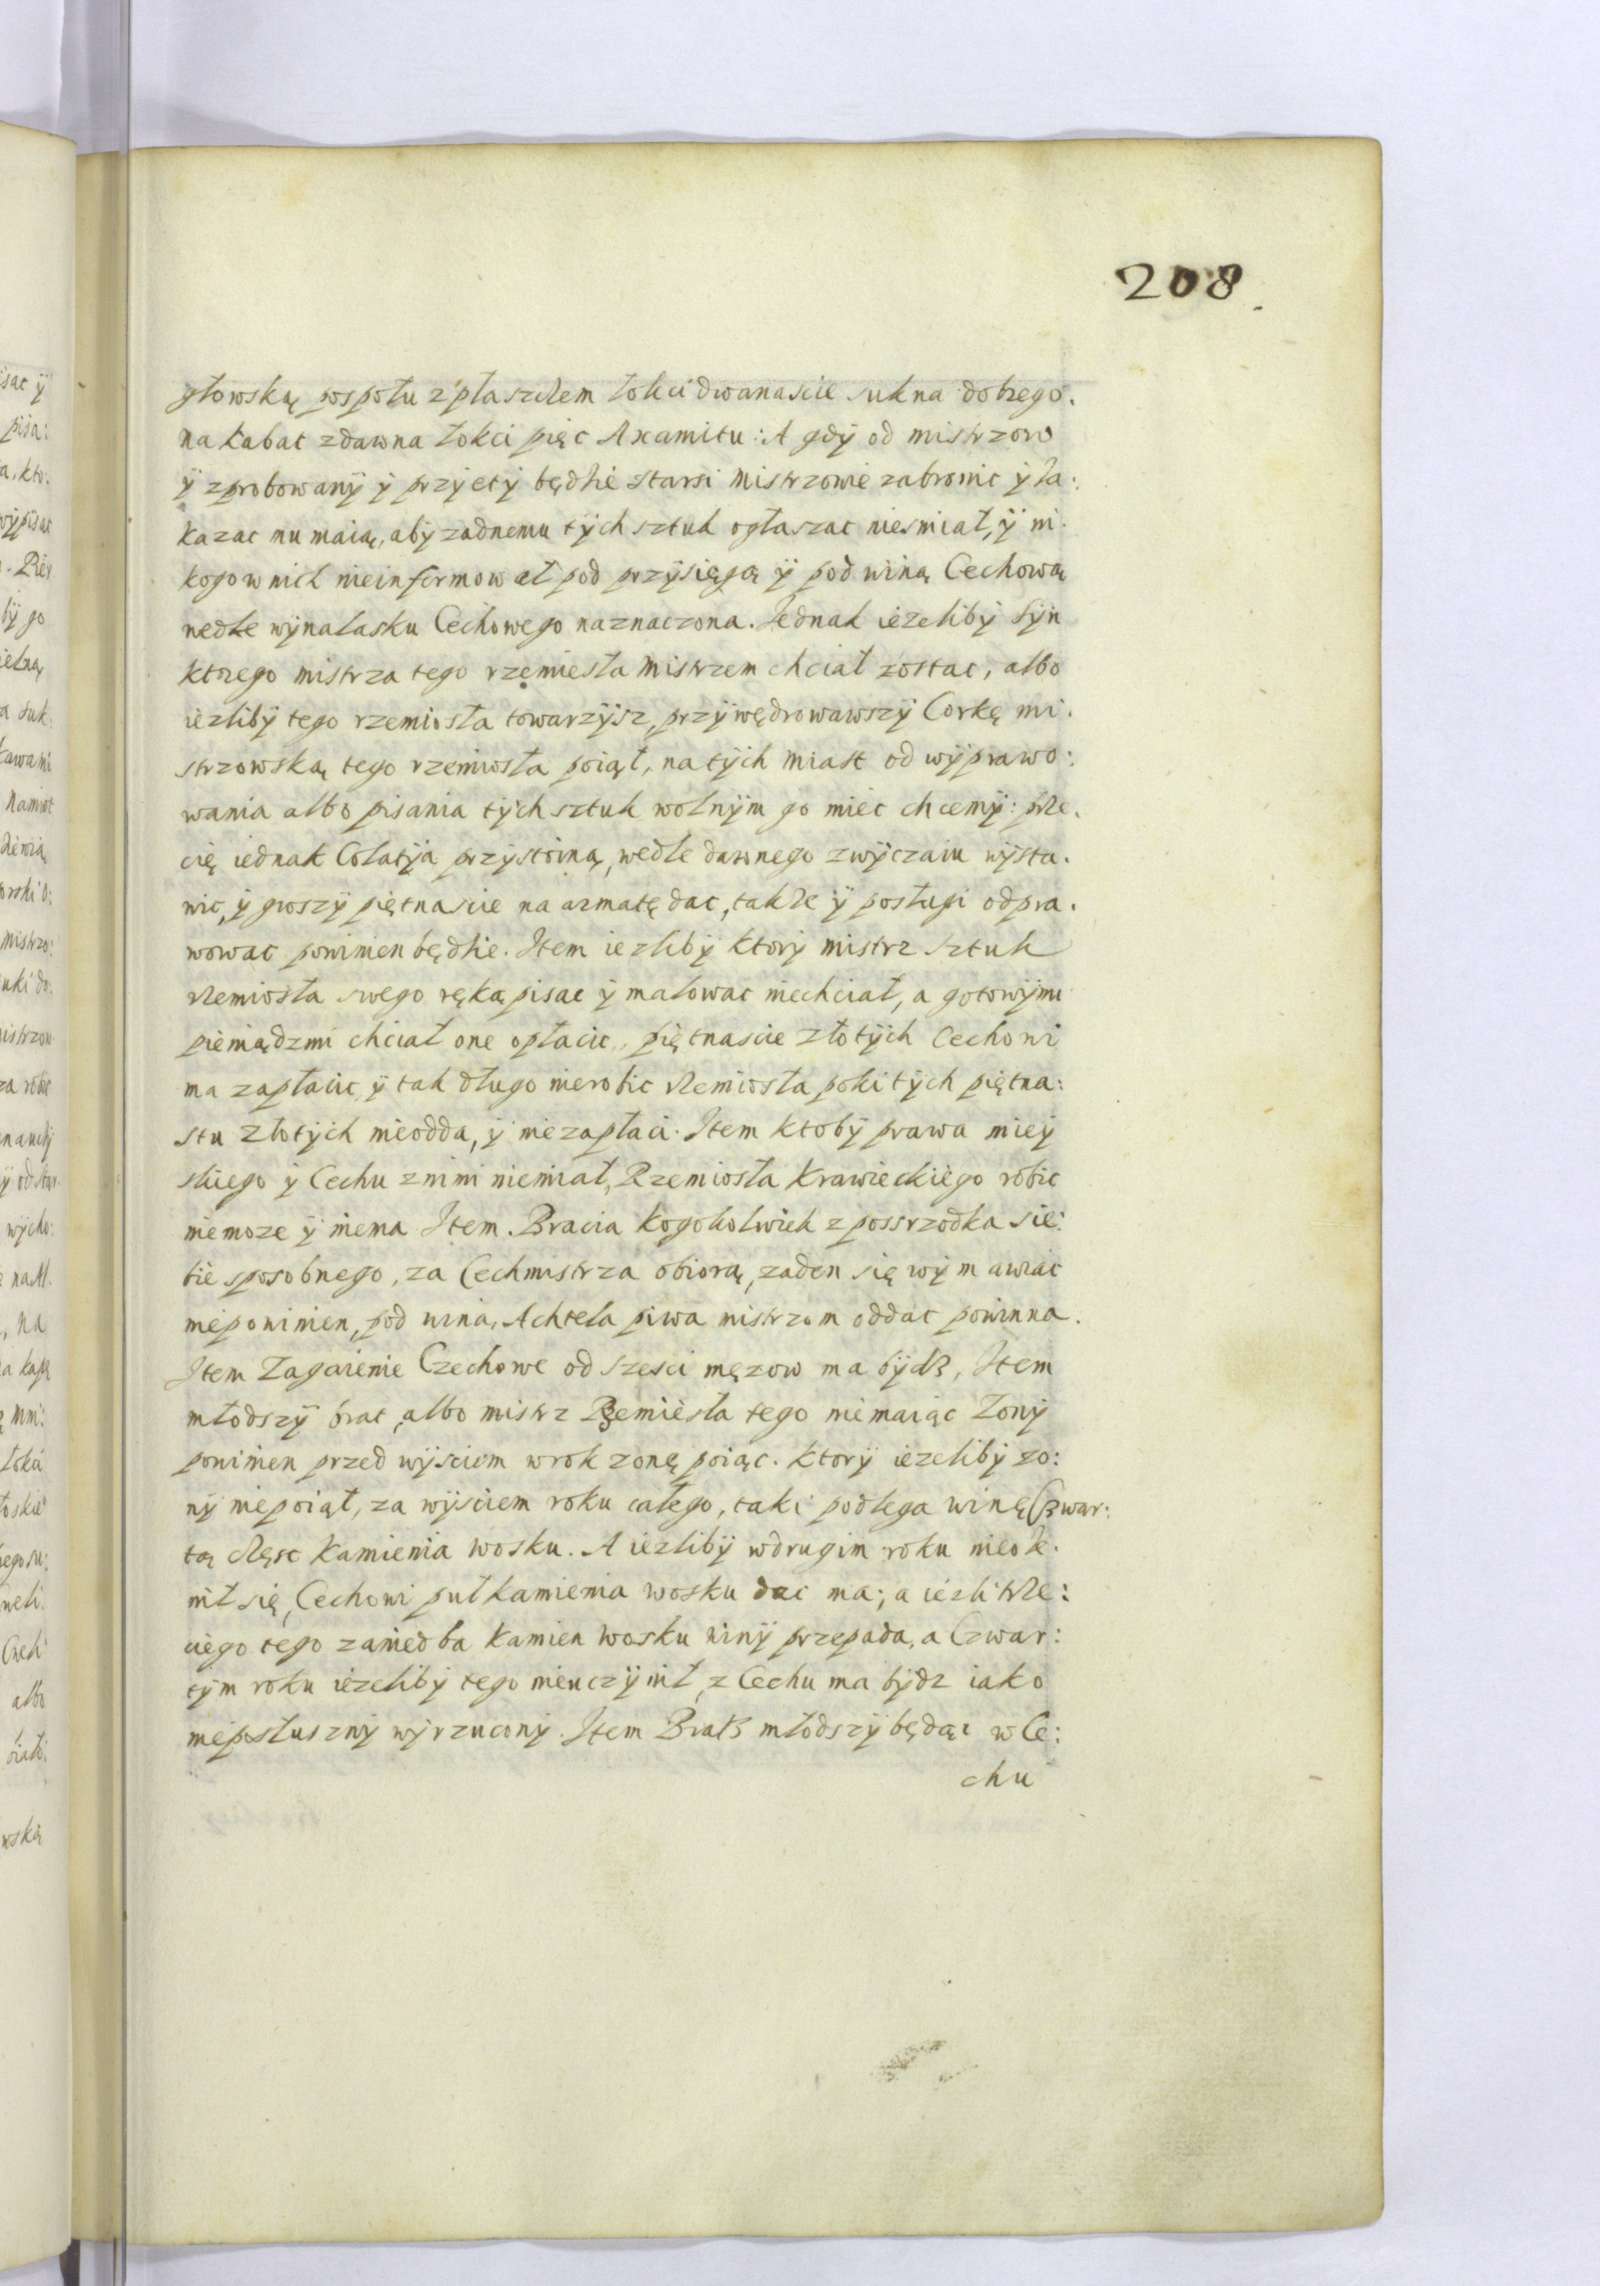 208
głowską pospołu z płaszczem łokci dwanascie sukna dobrego.
na kabat zdawna łokci pięc Axamitu: A gdÿ od mistrzow
ÿ zprobowanÿ ÿ przÿetÿ będzie starsi Mistrzowie zabronic ÿ za:
kazac mu maią, abÿ zadnemu tÿch sztuk ogłaszac niesmiał, ÿ ni.
kogo w nich nieinformował pod przÿsięgą ÿ pod winą Cechową
wedle wÿnalasku Cechowego naznaczona. Jednak iezelibÿ Sÿn
ktorego mistrza tego rzemiesła Mistrzem chciał zostac, albo
iezlibÿ tego rzemiosła towarzÿsz, przÿwędrowawszÿ Corkę mi.
strzowską tego rzemiosła poiął, natÿch miast od wÿprawo:
wania albo pisania tÿch sztuk wolnÿm go miec chcemÿ: prze.
cię iednak Colatÿa przÿstoiną, wedle dawnego zwÿczaiu wÿsta.
wic, ÿ groszÿ piętnascie na armatę dac, takze ÿ posługi odpra.
wowac powinien będzie. Item iezlibÿ ktorÿ mistrz sztuk
rzemiosła swego ręką pisac ÿ malowac niechciał, a gotowÿmi
pieniądzmi chciał one opłacic, piętnascie złotÿch Cechowi
ma zapłacic, ÿ tak długo nierobic rzemiosła poki tÿch piętna:
stu złotÿch nieodda, ÿ niezapłaci. Item ktobÿ prawa mieÿ
skiego ÿ Cechu znimi niemiał, Rzemiosła Krawieckiego robic
niemoze ÿ niema Item. Bracia kogokolwiek z possrzodka sie:
bie sposobnego, za Cechmistrza obiorą, zaden się wÿmawiac
niepowinien, pod wina, Achtela piwa mistrzom oddac powinna.
Item Zagaienie Czechowe od szesci męzow ma bÿdz, Item
młodszÿ brat, albo mistrz Rzemiesła tego niemaiąc Zonÿ
powinien przed wÿsciem wrok zonę poiąc. Ktorÿ iezelibÿ zo:
nÿ niepoiął, za wÿsciem roku całego, taki podlega winę Czwar:
tą częsc Kamienia wosku. A iezlibÿ wdrugim roku nieoze.
nił się, Cechowi puł kamienia wosku dac ma; a iezli trze:
ciego tego zaniedba Kamien wosku winÿ przepada, a Czwar:
tÿm roku iezelibÿ tego nieuczÿnił, z Cechu ma bÿdz iako
nieposłusznÿ wÿrzuconÿ. Item Bratz młodszÿ będąc w Ce:
chu